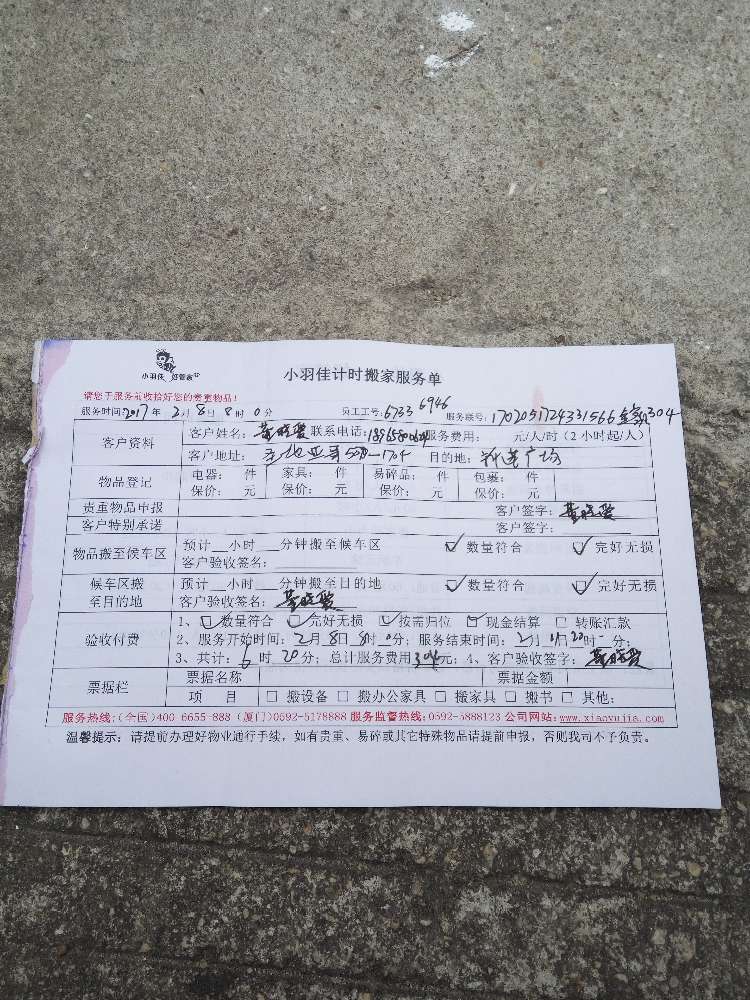 小羽佳 好管家
小羽佳计时搬家服务单
请您于服务前收拾好您的贵重物品!
服务时间:2017年 2月8日8时0分 员工工号:6733 6946 服务联号:1702051724331566 304
客户资料 客户姓名: 联系电话: 服务费用: 元/人/时(2小时起/人)
客户地址: 目的地: 广场
物品登记 电器: 件 家具: 件 易碎品: 件 包裹: 件
保价: 元 保价: 元 保价: 元 保价: 元
贵重物品申报 客户签字:
客户特别承诺 客户签字:
物品搬至候车区 预计__小时__分钟搬至候车区 ☑数量符合 ☑完好无损
客户验收签名:
候车区搬至目的地 预计__小时__分钟搬至目的地 ☑数量符合 ☑完好无损
客户验收签名:
验收付费 1、☑数量符合 ☑完好无损 ☑按需归位 ☑现金结算 □转账汇款
2、服务开始时间:2月8日8时0分; 服务结束时间:2月 日 时 分;
3、共计:6时20分; 总计服务费用304元; 4、客户验收签字:
票据栏 票据名称 票据金额
项 目 □搬设备 □搬办公家具 □搬家具 □搬书 □其他:
服务热线:(全国)400 6655-888 (厦门)0592-5178888 服务监督热线:0592-3888123 公司网站:www.xiaoyujia.com
温馨提示: 请提前办理好物业通行手续, 如有贵重、易碎或其它特殊物品请提前申报, 否则我司不予负责。